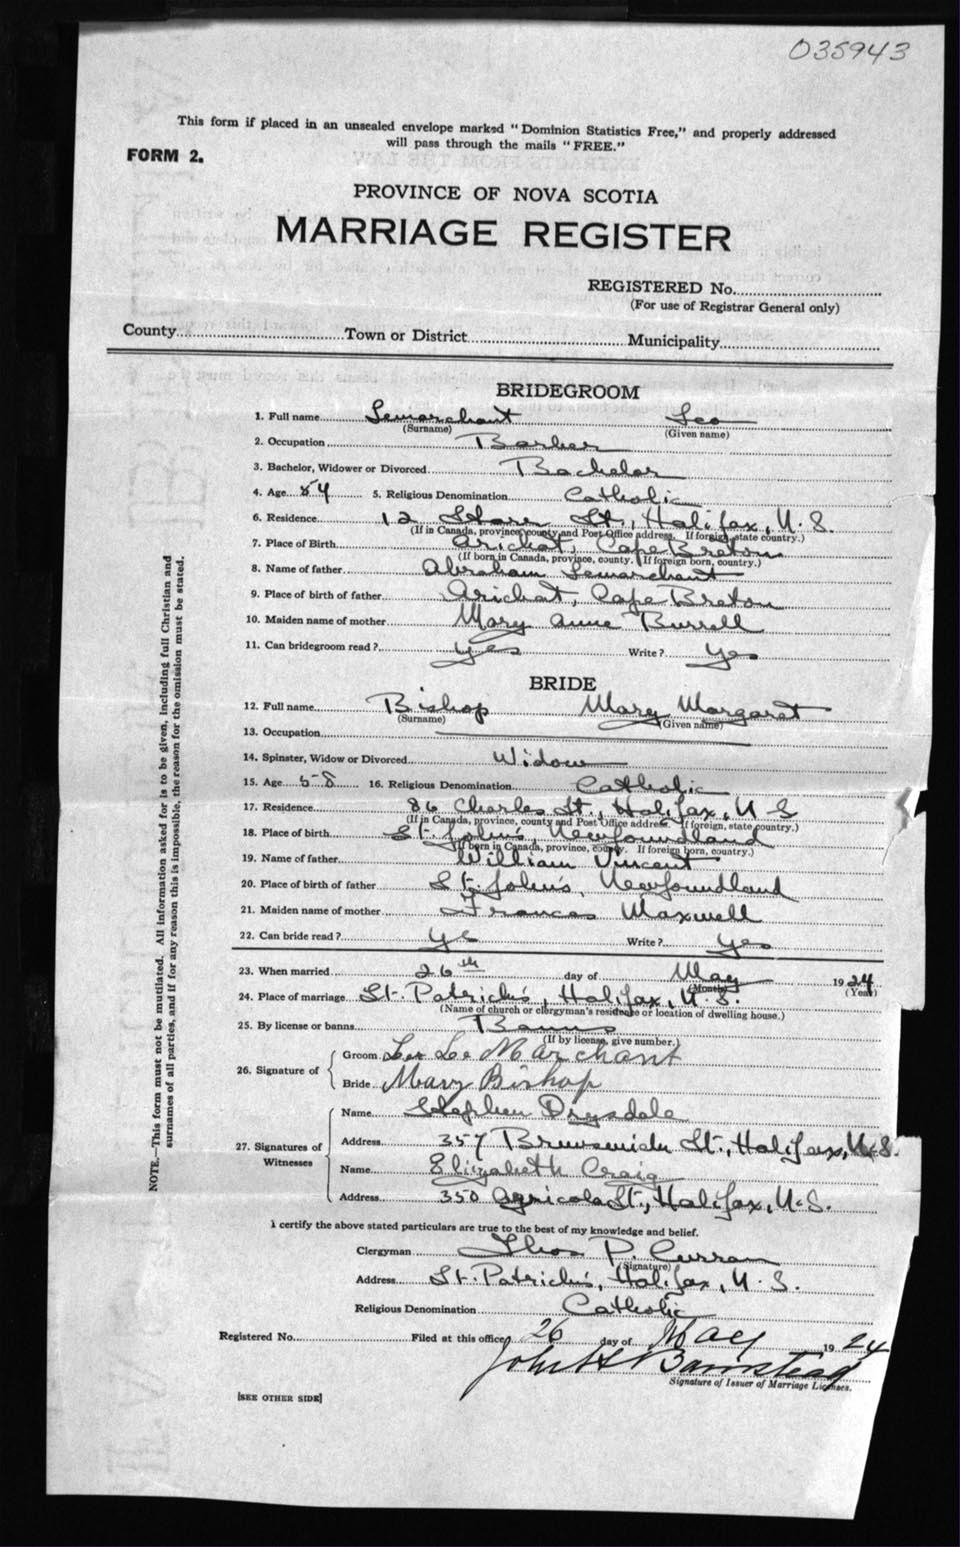 035943
This form if placed in an unsealed envelope marked "Dominion Statistics Free," and properly addressed
will pass through the mails "FREE."
FORM 2.
PROVINCE OF NOVA SCOTIA
MARRIAGE REGISTER
REGISTERED No.
(For use of Registrar General only)
County Town or District Municipality
BRIDEGROOM
1. Full name Lemarchant Leo
(Surname) (Given name)
2. Occupation Barber
3. Bachelor, Widower or Divorced Bachelor
4. Age 54 5. Religious Denomination Catholic
6. Residence 12 St., Halifax, N.S.
(If in Canada, province, county and Post Office address. If foreign, state country.)
7. Place of Birth Arichat, Cape Breton
(If born in Canada, province, county. If foreign born, country.)
8. Name of father Abraham Lemarchant
9. Place of birth of father Arichat, Cape Breton
10. Maiden name of mother Mary Anne Burrell
11. Can bridegroom read? Yes Write? Yes
BRIDE
12. Full name Bishop Mary Margaret
(Surname) (Given name)
13. Occupation
14. Spinster, Widow or Divorced Widow
15. Age 58 16. Religious Denomination Catholic
17. Residence 86 Charles St., Halifax, N S
(If in Canada, province, county and Post Office address. If foreign, state country.)
18. Place of birth St. John's Newfoundland
(If born in Canada, province, county. If foreign born, country.)
19. Name of father William Vincent
20. Place of birth of father St. John's, Newfoundland
21. Maiden name of mother Frances Maxwell
22. Can bride read? Yes Write? Yes
23. When married 26th day of May 1924
(Month) (Year)
24. Place of marriage St. Patrick's, Halifax, N.S.
(Name of church or clergyman's residence or location of dwelling house.)
25. By license or banns Banns
(If by license, give number.)
26. Signature of
Groom Leo Le Marchant
Bride Mary Bishop
27. Signatures of Witnesses
Name Stephen Drysdale
Address 357 Brunswick St., Halifax, N.S.
Name Elizabeth Craig
Address 350 Agricola St., Halifax, N.S.
I certify the above stated particulars are true to the best of my knowledge and belief.
Clergyman Thos P. Curran
(Signature)
Address St. Patrick's, Halifax, N.S.
Religious Denomination Catholic
Registered No. Filed at this office 26 day of May 1924
John H Barnstead
Signature of Issuer of Marriage Licenses.
[SEE OTHER SIDE]
NOTE.—This form must not be mutilated. All information asked for is to be given, including full Christian and
surnames of all parties, and if for any reason this is impossible, the reason for the omission must be stated.